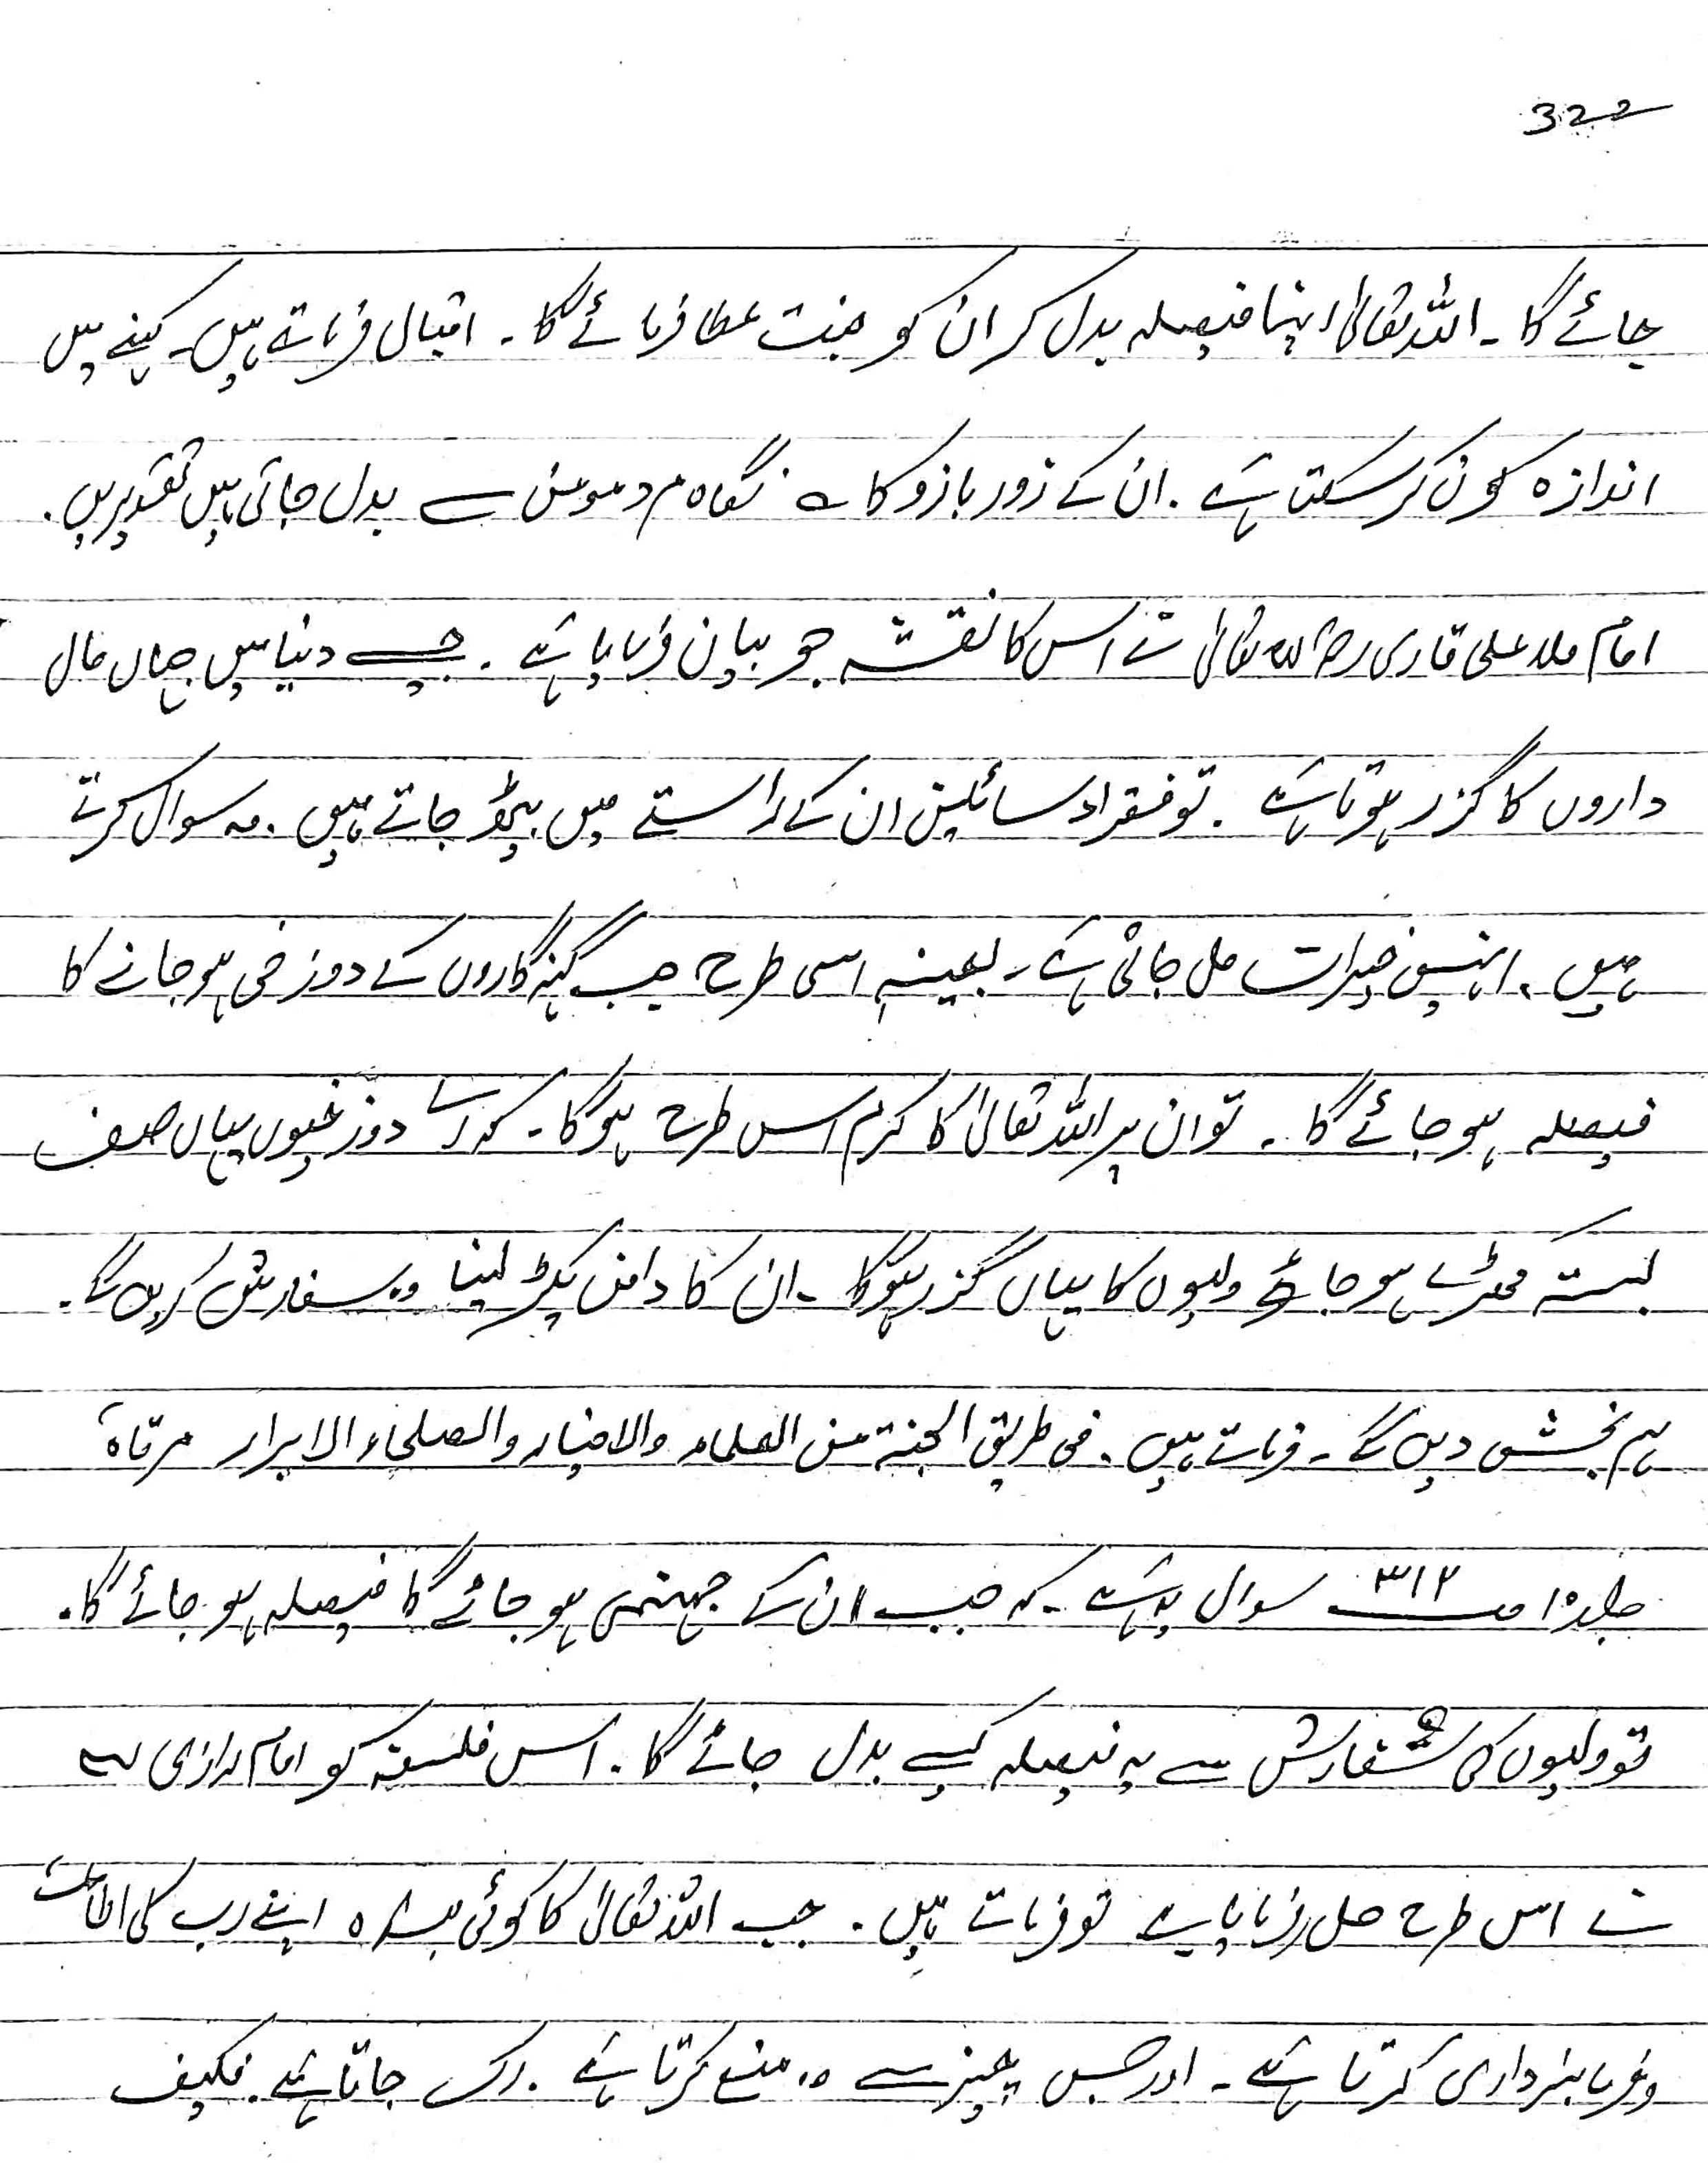 322
جائے گا۔ اللہ تعالیٰ اپنا فیصلہ بدل کر ان کو جنت عطا فرمائے گا۔ اقبال فرماتے ہیں۔ کہنے میں
اندازہ کون کر سکتا ہے۔ ان کے زور بازو کا نگاہ مرد مومن سے بدل جاتی ہیں تقدیریں۔
امام ملا علی قاری رحمۃ اللہ تعالیٰ نے اس کا نقشہ جو بیان فرمایا ہے۔ جیسے دنیا میں جہاں مال
داروں کا گزر ہوتا ہے۔ تو فقراء سائلین ان کے راستے میں بیٹھ جاتے ہیں۔ وہ سوال کرتے
ہیں۔ انہیں خیرات مل جاتی ہے۔ بعینہ اسی طرح جب گنہگاروں کے دوزخی ہو جانے کا
فیصلہ ہو جائے گا۔ تو ان پر اللہ تعالیٰ کا کرم اس طرح ہوگا۔ کہ اے دوزخیوں یہاں صف
بستہ کھڑے ہو جاؤ ولیوں کا یہاں گزر ہوگا۔ ان کا دامن پکڑ لینا وہ سفارش کریں گے۔
ہم بخش دیں گے۔ فرماتے ہیں۔ فی طریق الجنة من العلماء والاخیار والصلحاء الابرار مرقاۃ
جلد ۱۰ صـ ۳۱۲ سوال یہ ہے۔ کہ جب ان کے جہنمی ہو جائے گا فیصلہ ہو جائے گا۔
تو ولیوں کی شفارش سے یہ فیصلہ کیسے بدل جائے گا۔ اس فلسفہ کو امام رازی
نے اس طرح حل فرمایا ہے تو فرماتے ہیں۔ جب اللہ تعالیٰ کا کوئی بندہ اپنے رب کی اطاعت
وفرمانبرداری کرتا ہے۔ اور جس چیز سے وہ منع کرتا ہے۔ رک جاتا ہے۔ فکیف